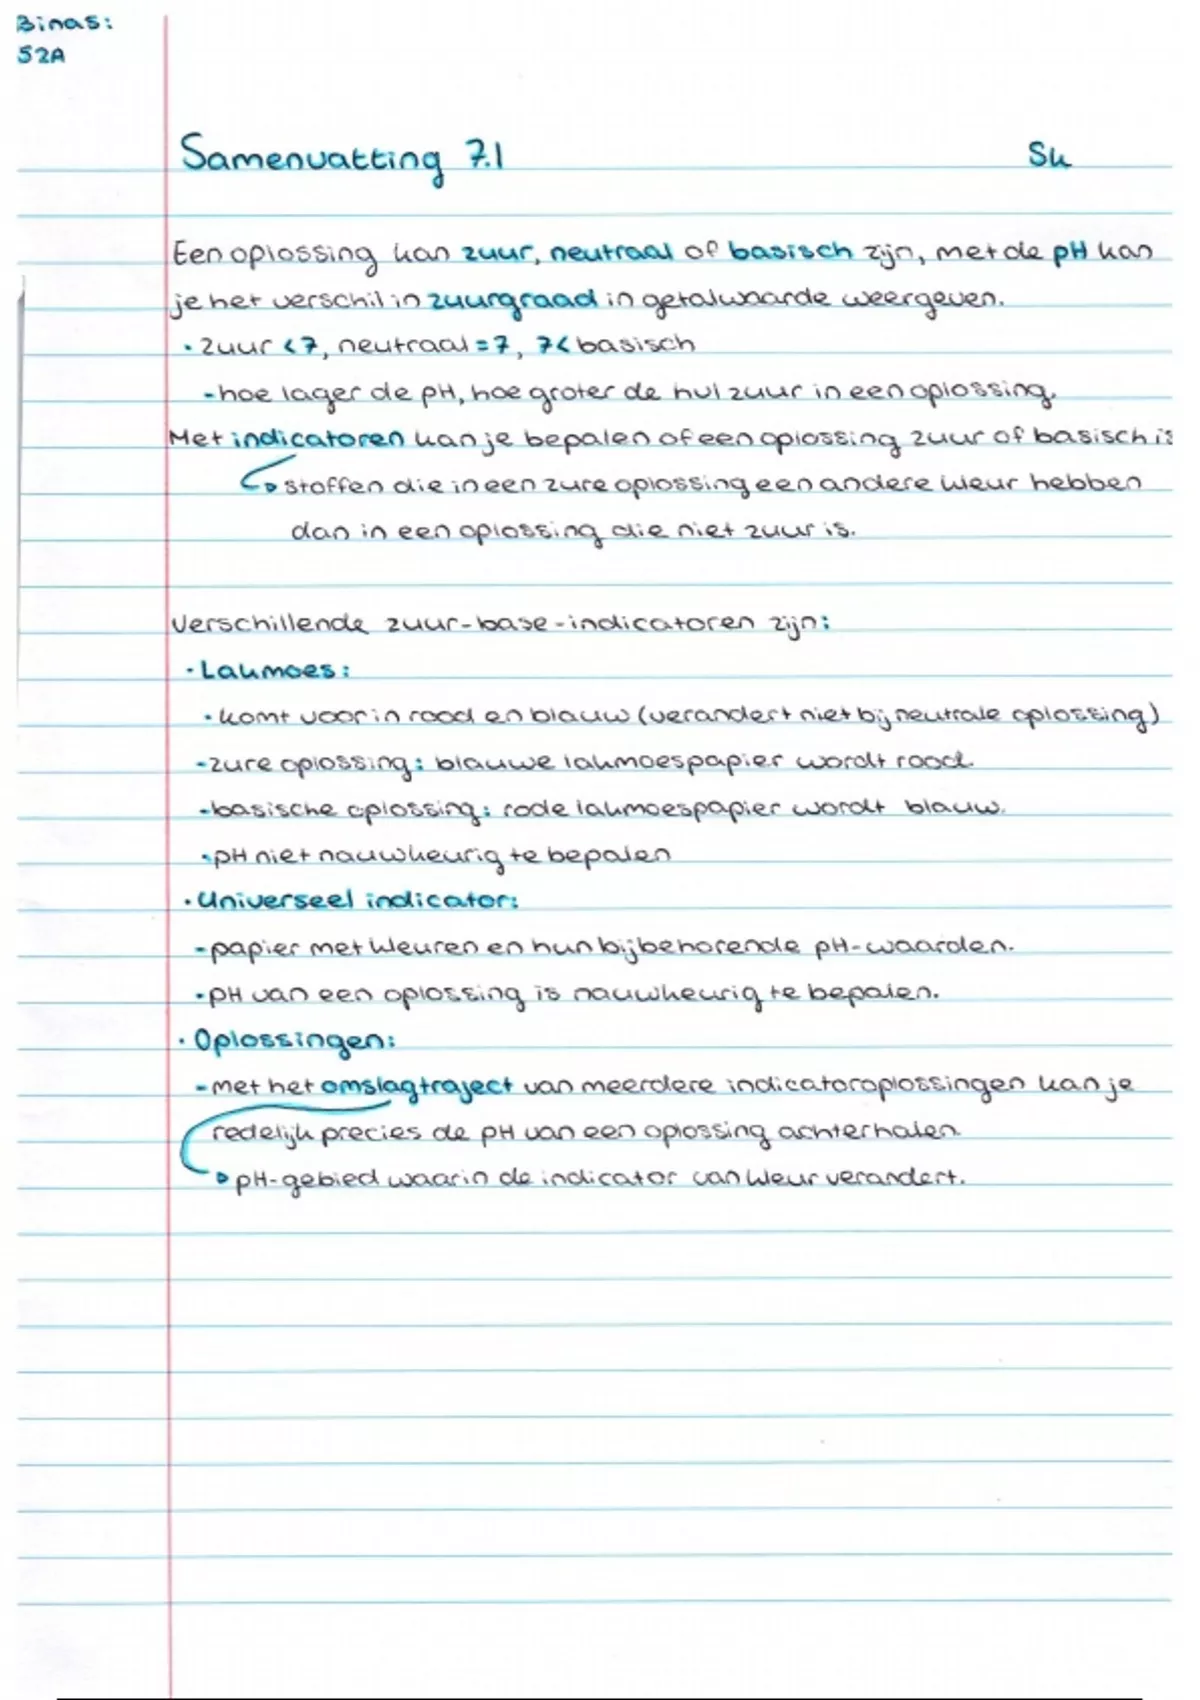 Binas:
52A
Samenvatting 7.1
Sk
Een oplossing kan zuur, neutraal of basisch zijn, met de pH kan
je het verschil in zuurgraad in getalwaarde weergeven.
· zuur <7, neutraal = 7, 7< basisch
- hoe lager de pH, hoe groter de hvl zuur in een oplossing.
Met indicatoren kan je bepalen of een oplossing zuur of basisch is
stoffen die in een zure oplossing een andere kleur hebben
dan in een oplossing die niet zuur is.
Verschillende zuur-base-indicatoren zijn:
· Lakmoes:
· komt voor in rood en blauw (verandert niet bij neutrale oplossing)
- zure oplossing: blauwe lakmoespapier wordt rood.
- basische oplossing: rode lakmoespapier wordt blauw.
· pH niet nauwkeurig te bepalen
· Universeel indicator:
- papier met kleuren en hun bijbehorende pH-waarden.
· pH van een oplossing is nauwkeurig te bepalen.
· Oplossingen:
- met het omslagtraject van meerdere indicatoroplossingen kan je
redelijk precies de pH van een oplossing achterhalen.
pH-gebied waarin de indicator van kleur verandert.